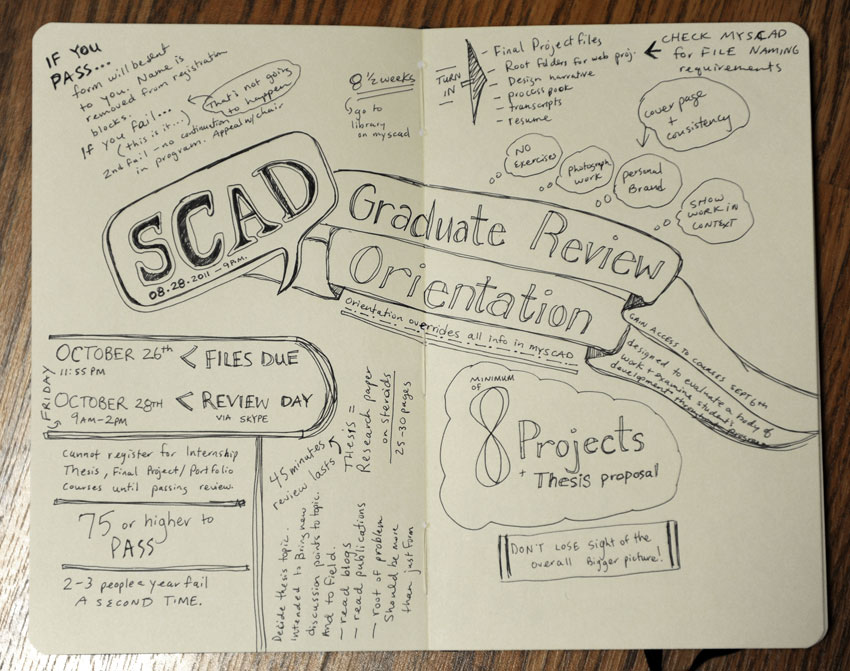 IF YOU
PASS...
form will be sent
to you. Name is
removed from registration
blocks.
If you fail...
(this is it...)
2nd fail - no continuation
in program. Appeal w/chair
That's not going
to happen
8 1/2 weeks
go to
library
on myscad
TURN
IN
- Final Project files
- Root folders for web proj.
- Design narrative
- process book
- transcripts
- resume
CHECK MYSCAD
for FILE NAMING
requirements
cover page
+
consistency
NO
Exercises
photograph
work
personal
Brand
SHOW
WORK IN
CONTEXT
SCAD
08.28.2011 - 9P.M.
Graduate Review
Orientation
Orientation overrides all info in MYSCAD
GAIN ACCESS TO COURSES SEPT 6th
designed to evaluate a body of
work + examine student's
development
FRIDAY
OCTOBER 26th < FILES DUE
11:55 PM
OCTOBER 28th < REVIEW DAY
9AM-2PM VIA SKYPE
Cannot register for Internship
Thesis, Final Project/Portfolio
Courses until passing review.
75 or higher to
PASS
2-3 people a year fail
A SECOND TIME.
45 minutes
review lasts
Thesis =
Research paper
on steroids
25-30 pages
Decide thesis topic.
intended to Bring new
discussion points to topic.
And to field.
- read blogs
- read publications
- root of problem
should be more
than just form
MINIMUM
OF
8 Projects
+ Thesis proposal
DON'T LOSE Sight of the
overall Bigger picture!